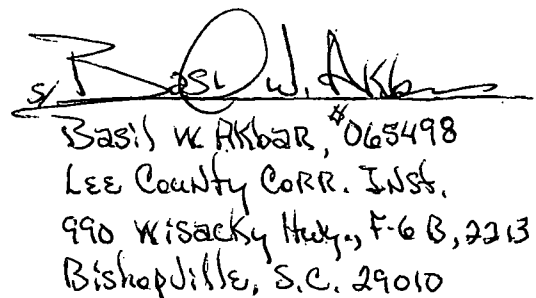 s/ Basil W. Akbar
Basil W. AKbaR, #065498
LEE CouNty CoRR. INst.
990 Wisacky Hwy., F-6 B, 2213
Bishopville, S.C. 29010